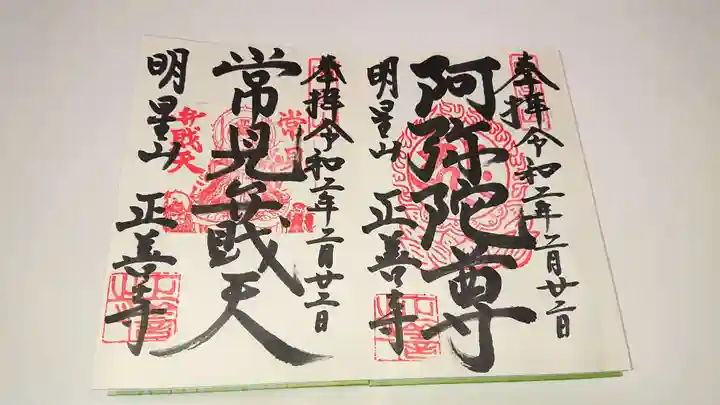 奉拝 令和二年二月廿二日
阿弥陀尊
明星山 正善寺
奉拝 令和二年二月廿二日
常見弁戝天
明星山 正善寺
弁戝天